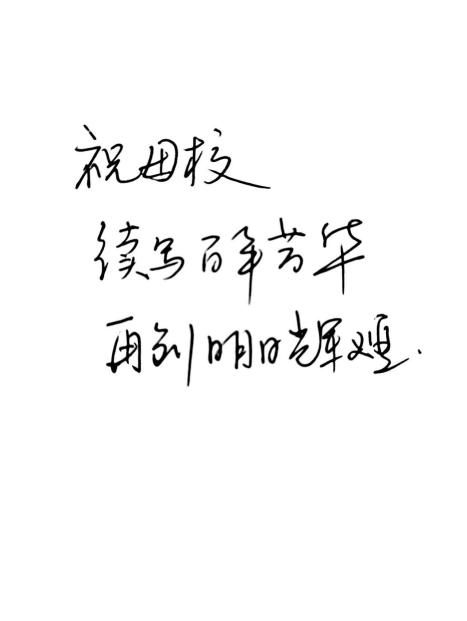 祝母校
续写百年芳华
再创明日辉煌.